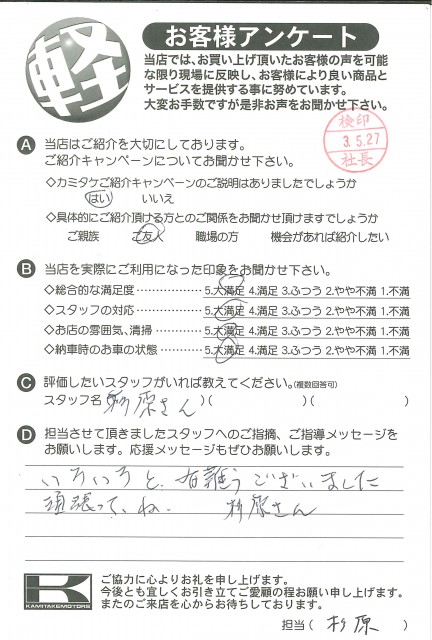 軽
お客様アンケート
当店では、お買い上げ頂いたお客様の声を可能
な限り現場に反映し、お客様により良い商品と
サービスを提供する事に努めています。
大変お手数ですが是非お声をお聞かせ下さい。
検印
3.5.27
社長
A 当店はご紹介を大切にしております。
ご紹介キャンペーンについてお聞かせ下さい。
◇カミタケご紹介キャンペーンのご説明はありましたでしょうか
はい いいえ
◇具体的にご紹介頂ける方とのご関係をお聞かせ頂けますでしょうか
ご親族 ご友人 職場の方 機会があれば紹介したい
B 当店を実際にご利用になった印象をお聞かせ下さい。
◇総合的な満足度……………5.大満足 4.満足 3.ふつう 2.やや不満 1.不満
◇スタッフの対応……………5.大満足 4.満足 3.ふつう 2.やや不満 1.不満
◇お店の雰囲気、清掃………5.大満足 4.満足 3.ふつう 2.やや不満 1.不満
◇納車時のお車の状態………5.大満足 4.満足 3.ふつう 2.やや不満 1.不満
C 評価したいスタッフがいれば教えてください。(複数回答可)
スタッフ名(杉原さん)( )( )
D 担当させて頂きましたスタッフへのご指摘、ご指導メッセージを
お願いします。応援メッセージもぜひお願いします。
いろいろと、有難うございました
頑張って、ね. 杉原さん
K
KAMITAKEMOTORS
ご協力に心よりお礼を申し上げます。
今後とも宜しくお引き立てご愛顧の程お願い申し上げます。
またのご来店を心からお待ちしております。
担当(杉原)